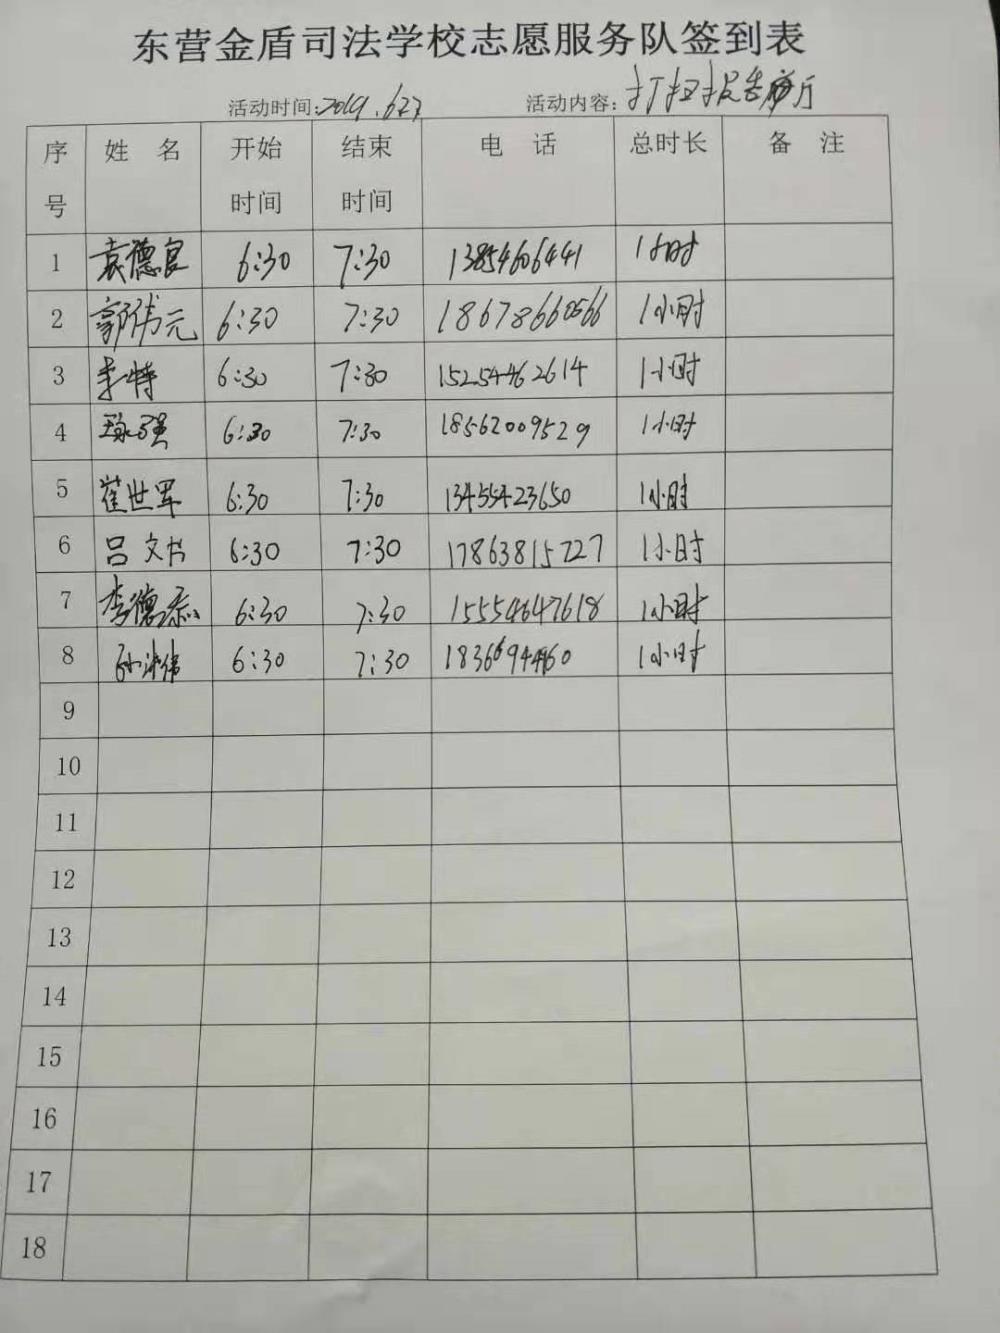 东营金盾司法学校志愿服务队签到表
活动时间:2019.6.23 活动内容:打扫报告厅
序号 姓 名 开始时间 结束时间 电 话 总时长 备 注
1 袁德良 6:30 7:30 13854606441 1小时
2 郭伟元 6:30 7:30 18678660566 1小时
3 李特 6:30 7:30 15254462614 1小时
4 强 6:30 7:30 18562009529 1小时
5 崔世军 6:30 7:30 13455423650 1小时
6 吕文书 6:30 7:30 17863815727 1小时
7 李德 6:30 7:30 15554647618 1小时
8 孙 伟 6:30 7:30 1小时
9
10
11
12
13
14
15
16
17
18